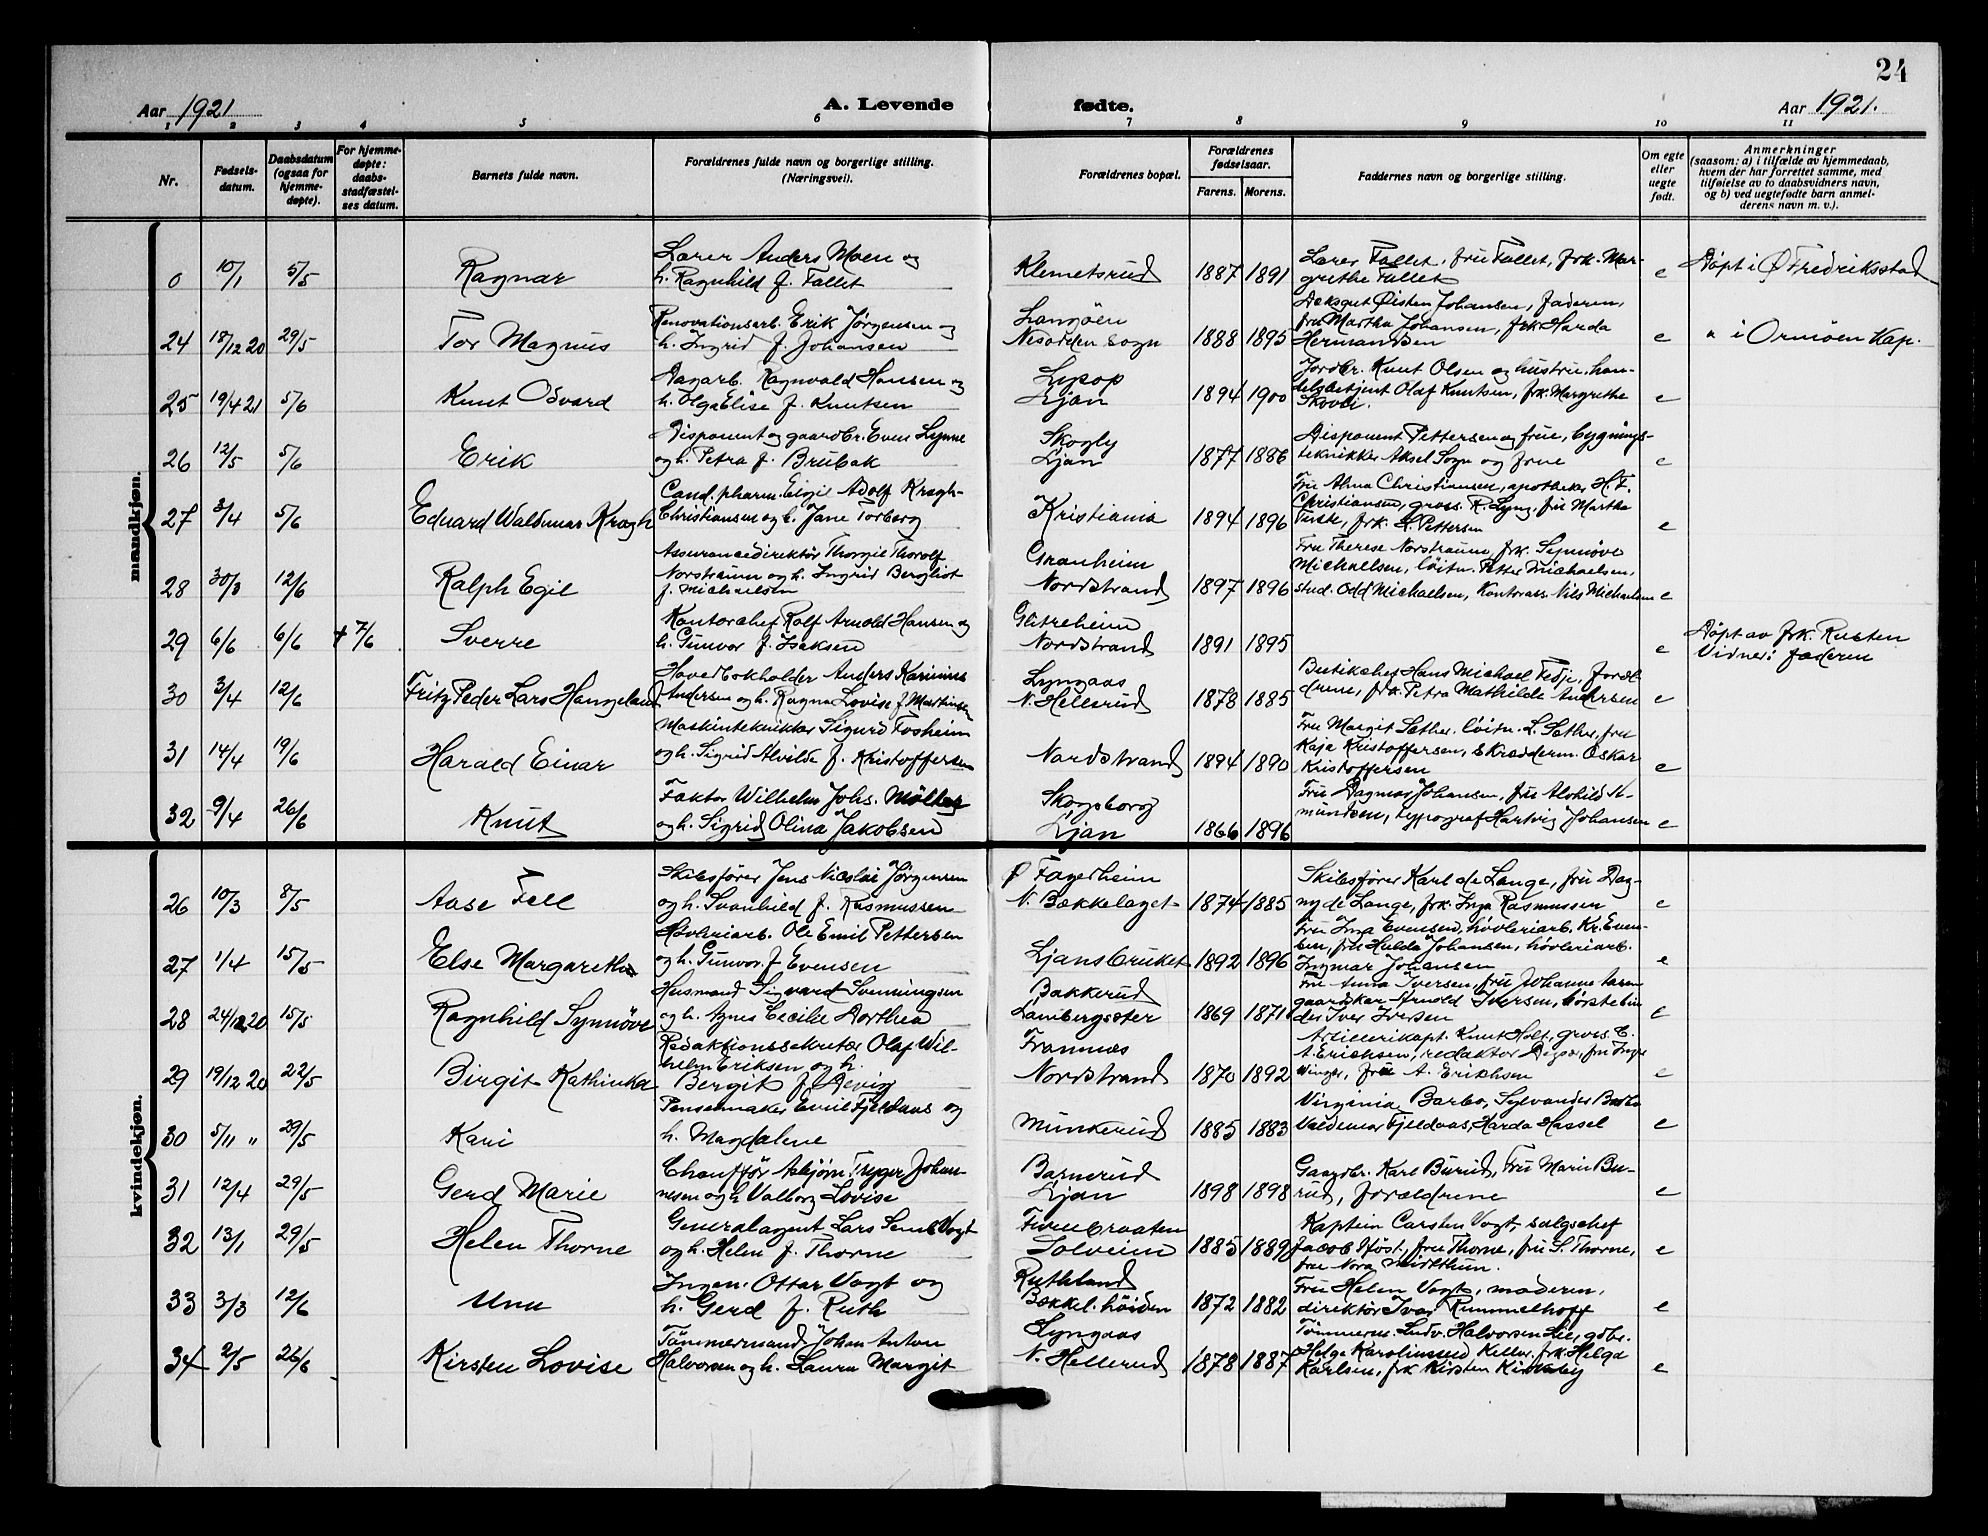 24
Aar 1921
A. Levende
fødte.
Aar 1921.
1 2 3 4 5 6 7 8 9 10 11
Nr.
Fødsels-
datum.
Daabsdatum
(ogsaa for
hjemme-
døpte).
For hjemme-
døpte:
daabs-
stadfæstel-
ses datum.
Barnets fulde navn.
Forældrenes fulde navn og borgerlige stilling.
(Næringsvei).
Forældrenes bopæl.
Forældrenes
fødselsaar.
Farens. Morens.
Faddernes navn og borgerlige stilling.
Om egte
eller
uegte
født.
Anmerkninger
(saasom: a) i tilfælde av hjemmedaab,
hvem der har forrettet samme, med
tilføielse av to daabsvidners navn,
og b) ved uegtefødte barn anmel-
derens navn m. v.).
mandkjøn.
0 10/1 5/5 Ragnar
Lærer Anders Moen og
h. Ragnhild f. Fallet
Klemetsrud
1887 1891
Lærer Fallet, fru Fallet, frk. Mar-
grethe Fallet
e
Døpt i Ø Fredriksstad
24 18/12 20 29/5 Tor Magnus
Renovationsarb. Erik Jørgensen og
h. Ingrid f. Johansen
Langöen
Nesodden sogn
1888 1895
Dæksgut Øisten Johansen, faderen,
fru Martha Johansen, frk. Harda
Hermandsen
e
" i Ormöen Kap.
25 19/4 21 5/6 Knut Odvard
Dagarb. Ragnvald Hansen og
h. Olga Elise f. Knutsen
Ljan
1894 1900
Jordbr. Knut Olsen og hustru, han-
delsbetjent Olaf Knutsen, frk. Margrethe
e
26 12/5 5/6 Erik
Disponent og gaardbr. Even Lynne
og h. Petra f. Brubak
Skogly
Ljan
1877 1886
Disponent Pettersen og frue, bygnings-
tekniker Aksel Sogn og frue
e
27 3/4 5/6 Eduard Waldemar Kragh
Cand. pharm. Eigil Adolf Kragh-
Christiansen og h. Jane Torberg
Kristiania
1894 1896
Fru Alma Christiansen, apotheker H. F.
Christiansen, gross. R. Lyng, fru Martha
frk. L. Pettersen
e
28 30/3 12/6 Ralph Egil
Assurancedirektör Thorgil Thorolf
Norstraum og h. Ingrid Bergliot
f. Michaelsen
Granheim
Nordstrand
1897 1896
Fru Therese Norstraum, frk. Synnøve
Michaelsen, löitn. Petter Michaelsen,
stud. Odd Michaelsen, Kontorass. Nils Michaelsen
e
29 6/6 6/6 + 7/6 Sverre
Kontorchef Rolf Arnold Hansen og
h. Gunvor f. Isaksen
Glitreheim
Nordstrand
1891 1895
e
Døpt av frk. Rusten
Vidner: faderen
30 3/4 12/6 Fritz Peder Lars Hangeland
Hovedbokholder Anders Karinius
Andersen og h. Ragna Lovise f. Martinsen
Lyngaas
N. Hellerud
1878 1885
Butikchef Hans Michael Tedje, foræl-
drene, frk. Petra Mathilde Andersen
e
31 14/4 19/6 Harald Einar
Maskintekniker Sigurd Fosheim
og h. Sigrid Alvilde f. Kristoffersen
Nordstrand
1894 1890
Fru Margit Sæther, löitn. L. Sæther, fru
Kaja Kristoffersen, skrædderm. Oskar
Kristoffersen
e
32 9/4 26/6 Knut
Faktor Wilhelm Johs.
og h. Sigrid Olina Jakobsen
Skogsborg
Ljan
1866 1896
Fru Dagmar Johansen, fru Alvhild A-
mundsen, typograf Hartvig Johansen
e
kvindekjøn.
26 10/3 8/5 Aase Fell
Skibsfører Jens Nicolai Jørgensen
og h. Svanhild f. Rasmussen
Fagerheim
N. Bækkelaget
1874 1885
Skibsfører Karl de Lange, fru Dag-
ny de Lange, frk. Inga Rasmussen
e
27 1/4 15/5 Else Margarethe
Høvleriarb. Ole Emil Pettersen
og h. Gunvor f. Evensen
Ljansbruket
1892 1896
Fru Inga Evensen, høvleriarb. Kr. Even-
sen, fru Hulda Johansen, høvleriarb.
Ingmar Johansen
e
28 24/12 20 15/5 Ragnhild Synnöve
Husmand Sigvard Svenningsen
og h. Agnes Cecilie Dorthea
Bakkerud
Lambergsæter
1869 1871
Fru Anna Iversen, fru Johanne
gaardskar Arnold Iversen, børstebin
der Iver Iversen
e
29 19/12 20 22/5 Birgit Kathinka
Redaktionssekretær Olaf Wil-
helm Eriksen og h.
Bergit f. Revig
Framnæs
Nordstrand
1870 1892
Artillerikapt. Knut Holt, gross. C.
A. Erichsen, redaktør fru Inga
Winger, frue A. Erichsen
e
30 5/11 " 29/5 Kari
Pensemaker Emil Fjeldaas og
h. Magdalene
Munkerud
1885 1883
Virginia Barbo, Sylvander Barbo
Valdemar Fjeldaas, Harda Hassel
e
31 12/4 29/5 Gerd Marie
Chauffør Asbjørn Trygve Johan-
nesen og h. Valborg Lovise
Bamerud
Ljan
1898 1898
Gaardbr. Karl Burud, Fru Marie Bu-
rud, forældrene
e
32 13/1 29/5 Helen Thorne
Generalagent Lars Semb Vogt
og h. Helen f. Thorne
Furubraaten
Solveien
1885 1889
Kaptein Carsten Vogt, salgschef
Jacob Høst, fru Thorne, fru S. Thorne,
fru Nora Midtthun.
e
33 3/3 12/6 Unn
Ingen. Ottar Vogt og
h. Gerd f. Ruth
Ruthland
Bækkel. höiden
1872 1882
Fru Helen Vogt, moderen,
direktör Ivar Rummelhoff
e
34 2/5 26/6 Kirsten Lovise
Tømmermand Johan Anton
Halvorsen og h. Laura Margit
Lyngaas
N. Hellerud
1878 1887
Tømmerm. Ludv. Halvorsen Lie, gdbr.
Helge Karolinssen frk. Helga
Karlsen, frk. Kirsten Kirkeby
e